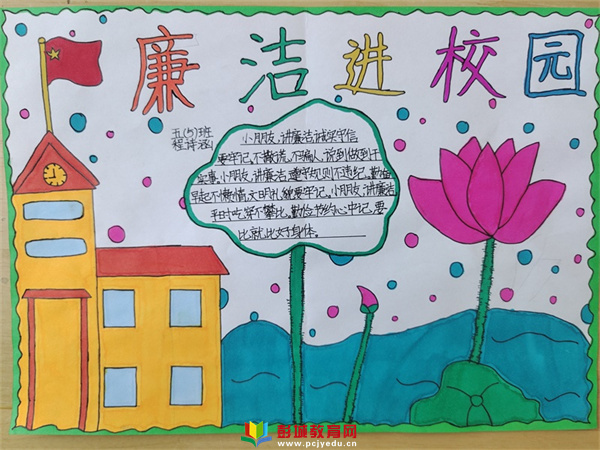 廉洁进校园
五(5)班
程诗涵
小朋友,讲廉洁,诚实守信
要牢记,不撒谎,不骗人,说到做到干
实事。小朋友,讲廉洁,遵守规则不违纪。勤俭
早起不懒惰,文明礼貌要牢记。小朋友,讲廉洁
和吃穿不攀比。勤俭节约心中记,要
比就比好身体。
彭城教育网
www.pcjyedu.cn